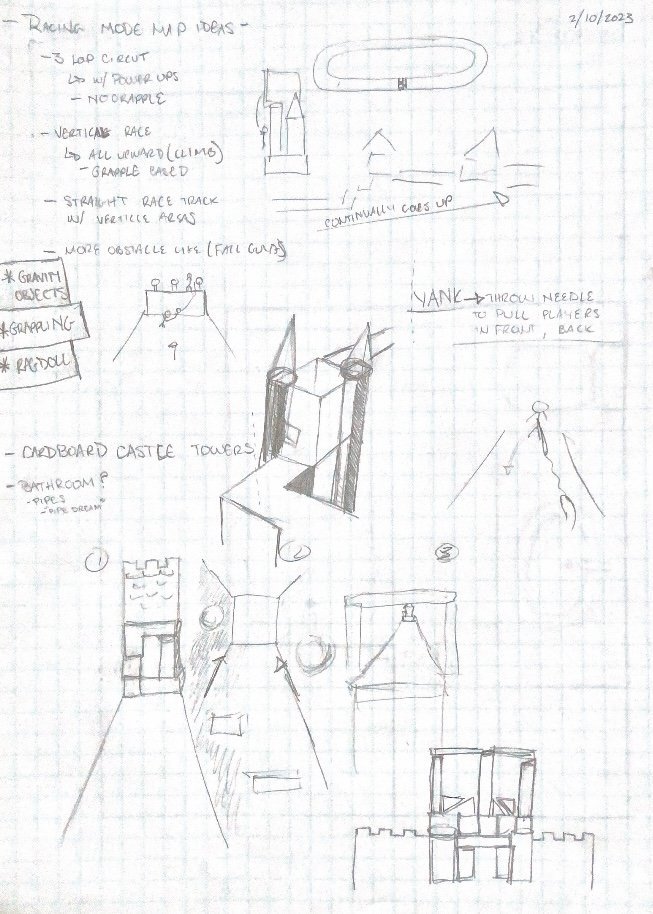 2/10/2023
- RACING MODE MAP IDEAS -
- 3 LAP CIRCUT
↳ W/ POWER UPS
- NO GRAPPLE
- VERTICAL RACE
↳ ALL UPWARD (CLIMB)
- GRAPPLE BASED
- STRAIGHT RACE TRACK
W/ VERTICLE AREAS
CONTINUALLY GOES UP
- MORE OBSTACLE LIKE (FALL GUYS)
* GRAVITY
OBJECTS
* GRAPPLING
* RAGDOLL
YANK → THROW NEEDLE
TO PULL PLAYERS
IN FRONT, BACK
- CARDBOARD CASTLE TOWERS
- BATHROOM?
- PIPES
- "PIPE DREAM"
1
2
3